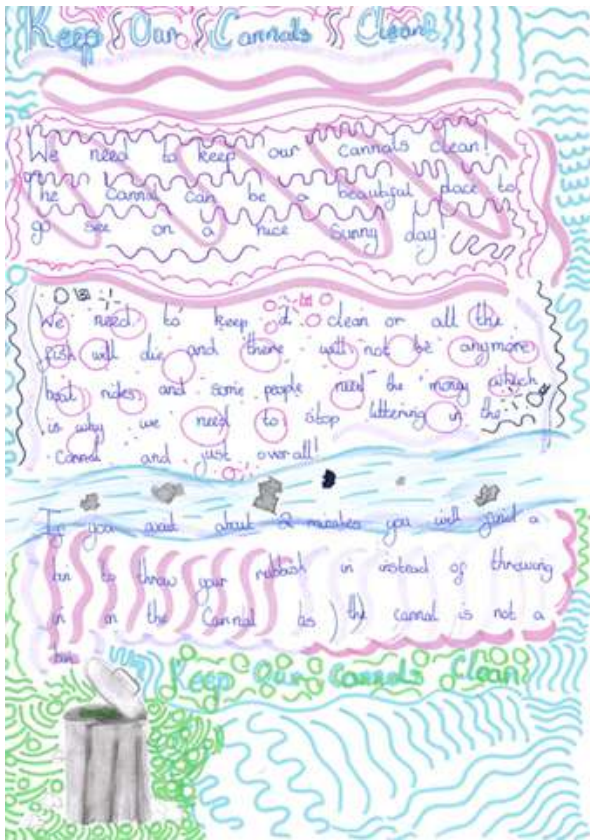 Keep Our Cannals Clean!
We need to keep our cannals clean!
The Cannal can be a beautiful place to
go see on a nice sunny day!
We need to keep it clean or all the
fish will die and there will not be anymore
boat rides and some people need the money which
is why we need to stop littering in the
Cannal and just overall!
If you wait about 2 minutes you will find a
bin to throw your rubbish in instead of throwing
in in the Cannal as the cannal is not a
bin
Keep Our Cannals Clean